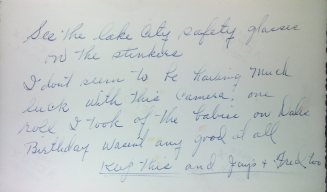 See the lake City safety glasses
on the stinkers
I dont seem to be having much
luck with this camera. one
roll I took of the babies on Dales
Birthday wasnt any good at all
Keep this and & Fred, too